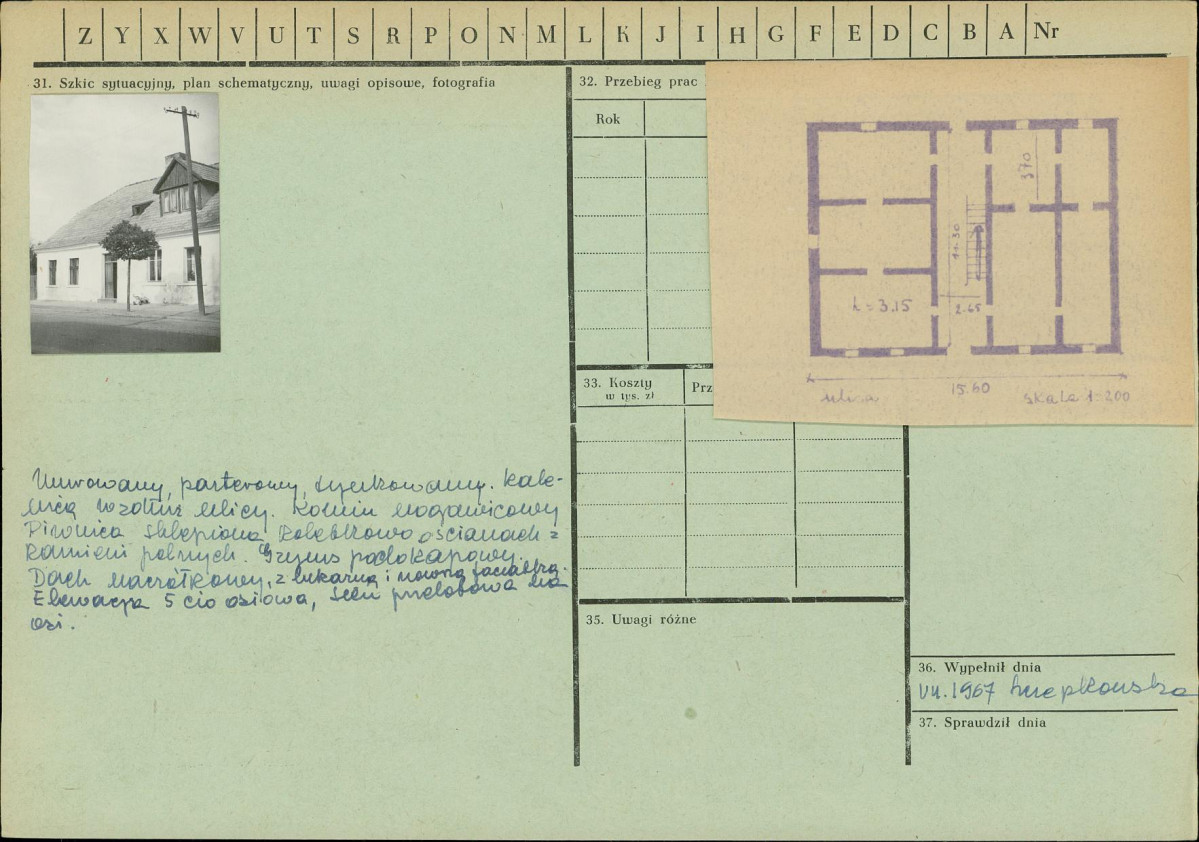 Z Y X W V U T S R P O N M L K J I H G F E D C B A Nr
31. Szkic sytuacyjny, plan schematyczny, uwagi opisowe, fotografia
Murowany, parterowy, tynkowany. Kale-
nicą wzdłuż ulicy. Komin nogawicowy
Piwnica sklepiona kolebkowo o ścianach z
kamieni polnych. Gzyms podokapowy.
Dach naczółkowy, z lukarną i nowną facjatką.
Elewacja 5 cio osiowa, sień przelotowa na
osi.
32. Przebieg prac
Rok
33. Koszty
w tys. zł
Prz
370
11.30
h = 3.15
2.65
15.60
ulica
skala 1=200
35. Uwagi różne
36. Wypełnił dnia
VII.1967
37. Sprawdził dnia